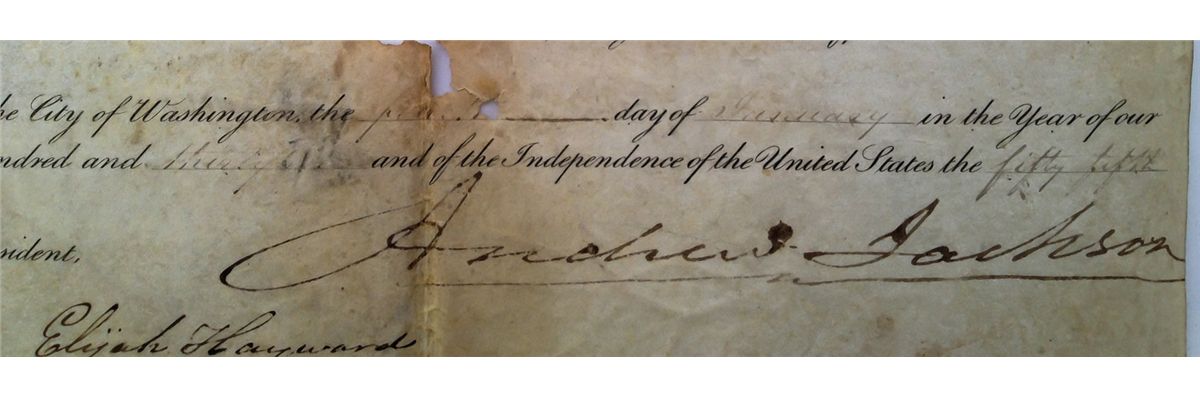 he City of Washington, the day of January in the Year of our
ndred and thirty and of the Independence of the United States the fifty fifth
sident,
Andrew Jackson
Elijah Hayward